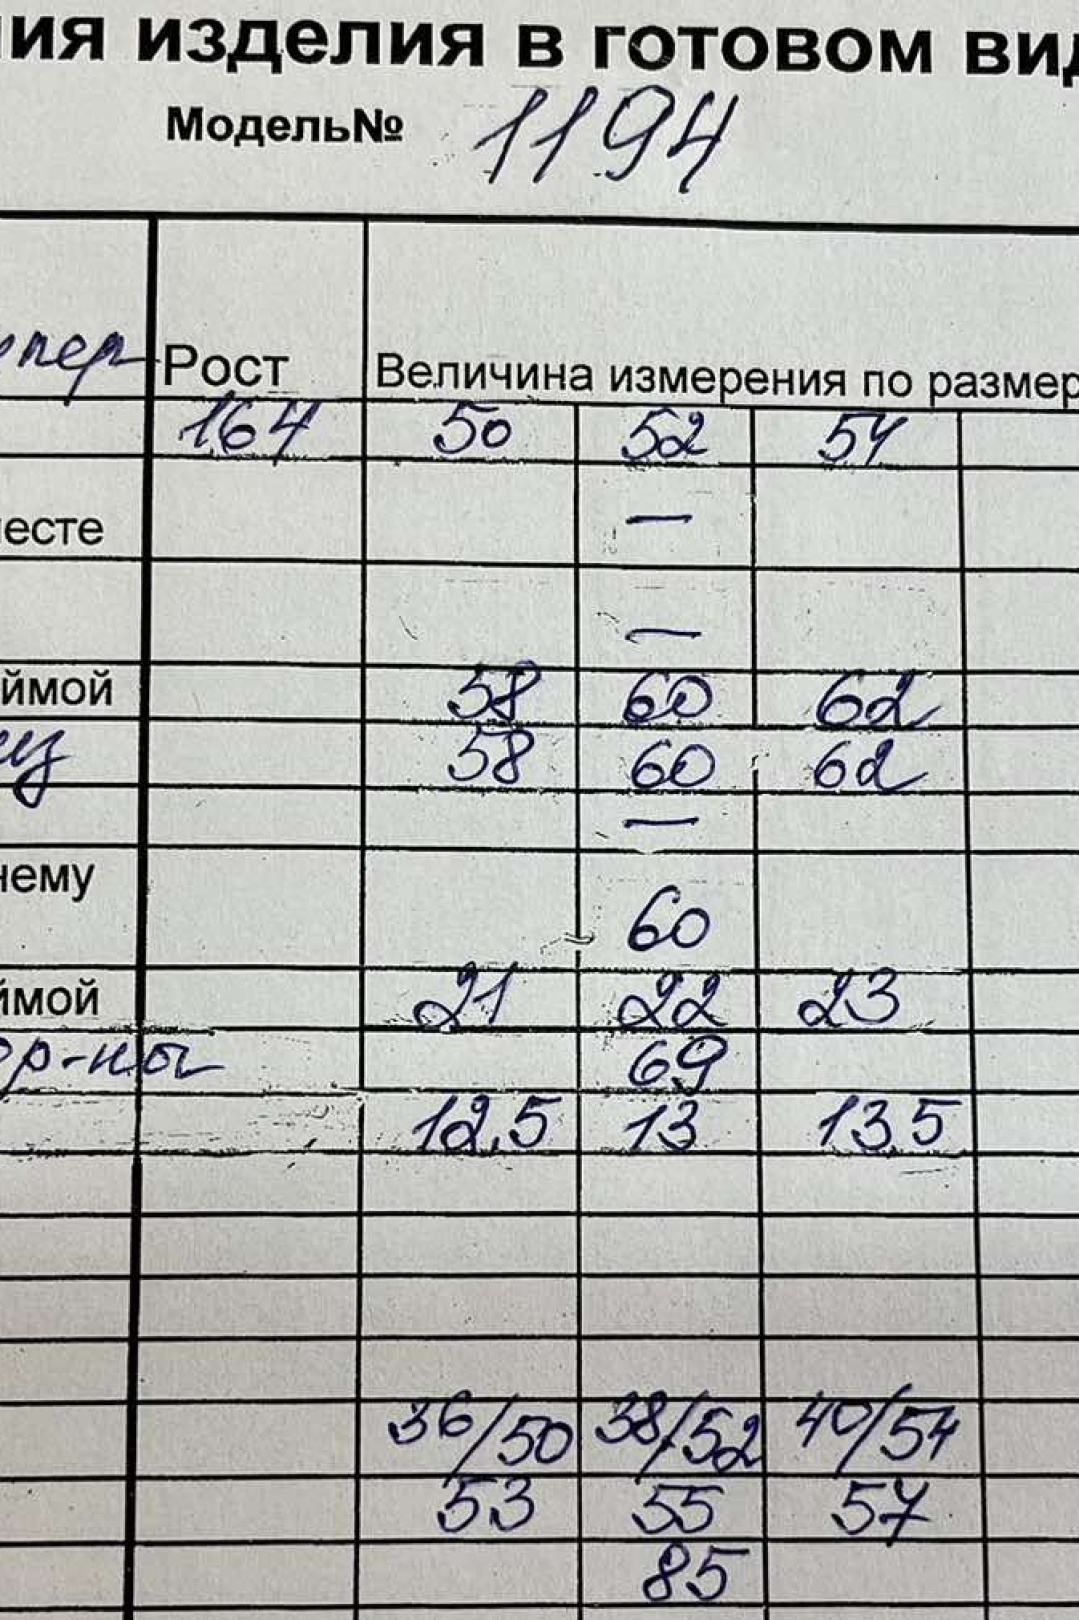 ия изделия в готовом вид
Модель№ 1194
упер Рост Величина измерения по размер
164 50 52 54
есте —
—
ймой 58 60 62
ец 58 60 62
—
нему 60
ймой 21 22 23
ор-ны 69
12,5 13 13,5
36/50 38/52 40/54
53 55 57
85